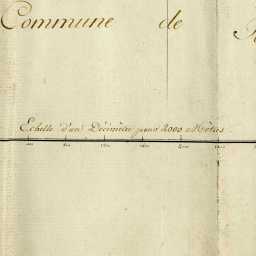 Commune de
Echelle d'un Décimètre pour 2000 Mètres